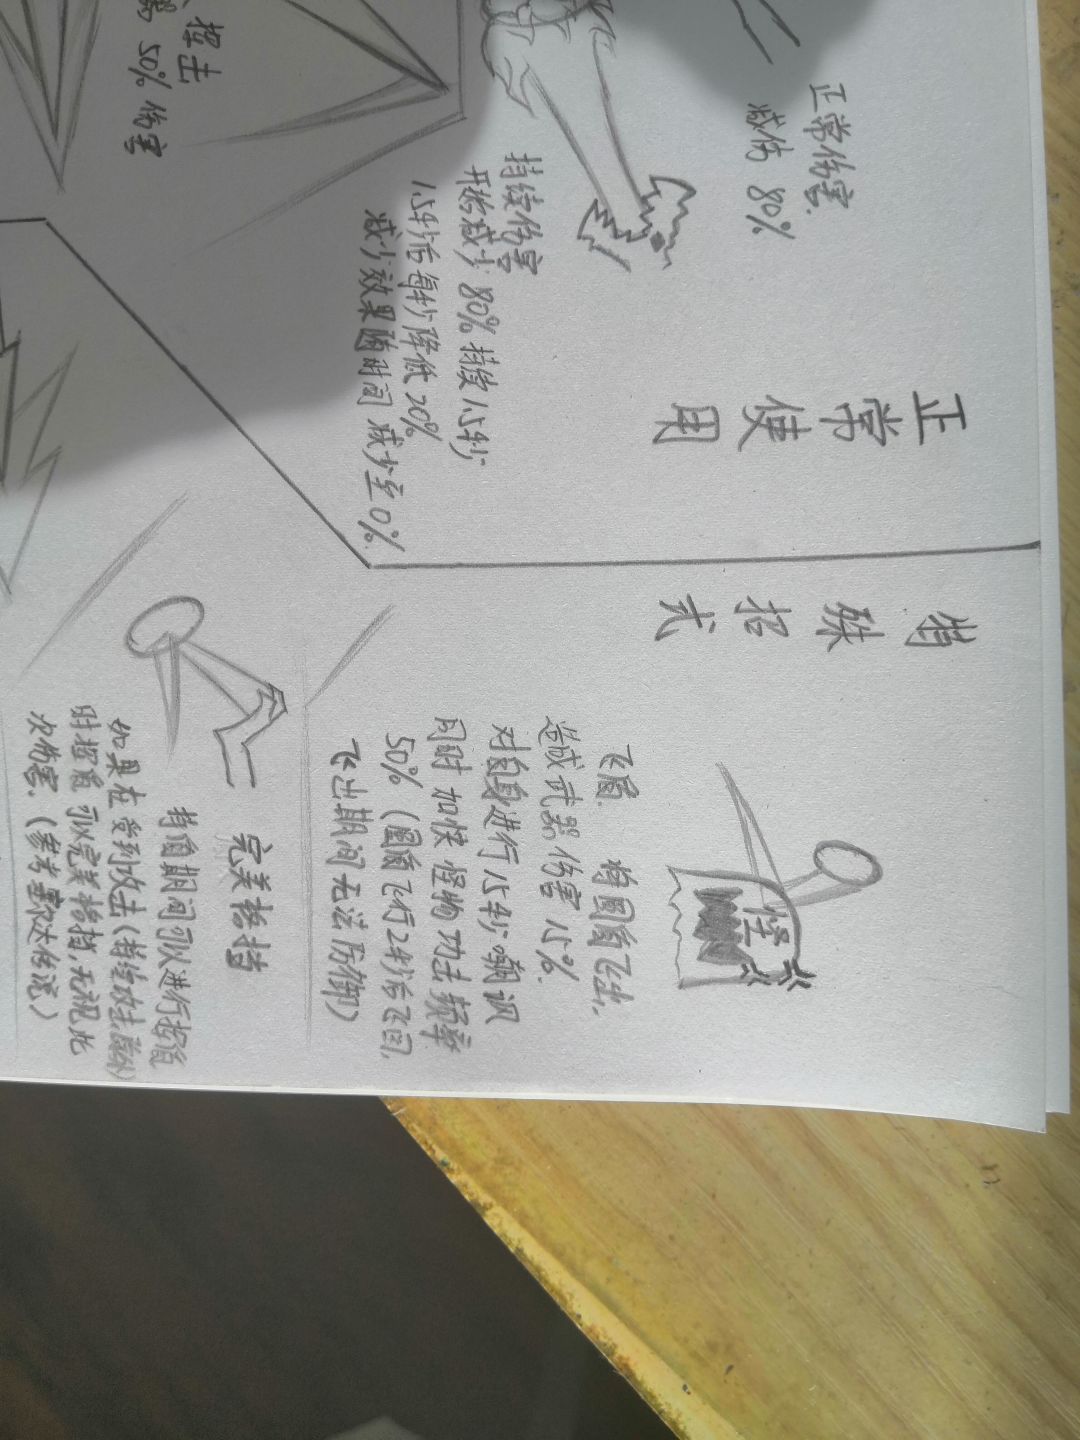 正常伤害
减伤 80%
持续伤害
开始减少 80% 持续 1.5秒
1.5秒后每秒降低 20%
减少效果随时间 减少至 0%
正常使用
50% 伤害
特殊招式
怪
飞盾. 将圆盾飞出,
造成武器伤害 15%.
对自身进行 1.5秒嘲讽
同时 加快 怪物 功击 频率
50% (圆盾飞行2秒后飞回,
飞出期间无法防御)
完美格挡
持盾期间可以进行
如果在受到攻击(持续攻击除外)
时 可以完美格挡,无视此
次伤害. (参考塞尔达传说)